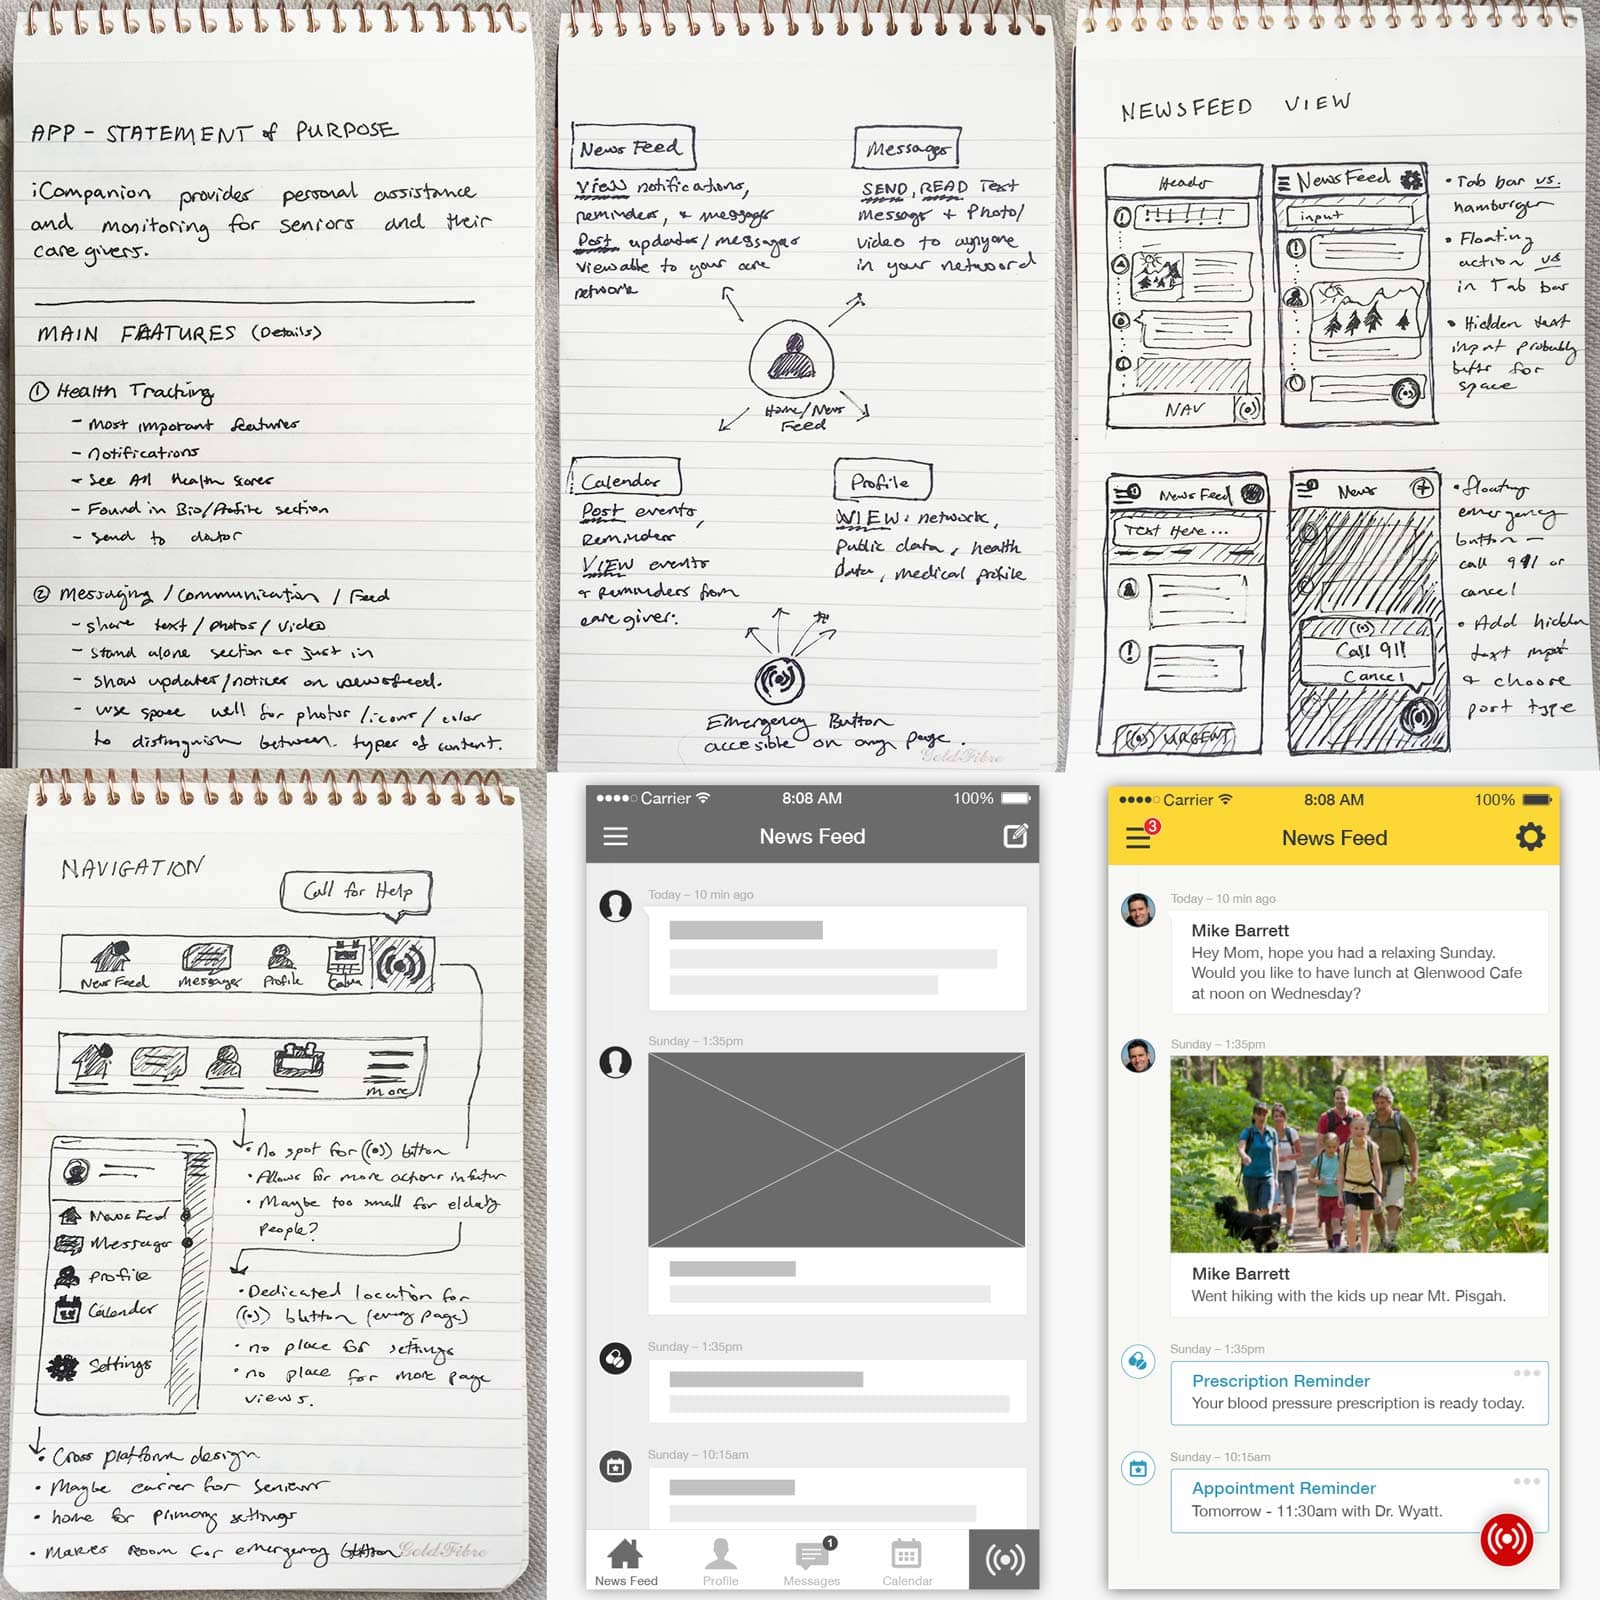 APP - STATEMENT of PURPOSE
iCompanion provides personal assistance
and monitoring for seniors and their
care givers.
MAIN FEATURES (Details)
① Health Tracking
- Most important features
- Notifications
- See All Health Scores
- Found in Bio/Profile section
- Send to doctor
② Messaging / Communication / Feed
- Share text / photos / video
- Stand alone section or just in
- Show updates/notices on newsfeed.
- Use space well for photos / icons / color
to distinguish between types of content.
News Feed
View notifications,
reminders, & messages
Post updates/messages
viewable to your care
network
Messages
SEND, READ Text
Message + Photo/
Video to anyone
in your network
Home/News
Feed
Calendar
Post events,
Reminders
View events
& Reminders from
care giver.
Profile
VIEW: network,
Public data, health
data, medical profile
Emergency Button
accesible on any page.
Gold Fibre
NEWSFEED VIEW
Header
NAV
News Feed
input
• Tab bar vs.
hamburger
• Floating
action vs
in Tab bar
• Hidden text
input probably
better for
space
News Feed
Text Here ...
((•)) URGENT
News
Call 911
Cancel
• floating
emergency
button -
call 911 or
cancel
• Add hidden
text input
& choose
post type
NAVIGATION
Call for Help
News Feed
Messages
Profile
More
• No spot for ((•)) button
• Allows for more actions in futur
• Maybe too small for elderly
people?
News Feed
Messages
Profile
Calendar
Settings
• Dedicated location for
((•)) button (every page)
• no place for settings
• no place for more page
views.
• Cross platform design
• Maybe easier for seniors
• home for primary settings
• Makes room for emergency button
Gold Fibre
Carrier
8:08 AM
100%
News Feed
Today – 10 min ago
Sunday – 1:35pm
Sunday – 1:35pm
Sunday – 10:15am
1
News Feed
Profile
Messages
Calendar
Carrier
8:08 AM
100%
3
News Feed
Today – 10 min ago
Mike Barrett
Hey Mom, hope you had a relaxing Sunday.
Would you like to have lunch at Glenwood Cafe
at noon on Wednesday?
Sunday – 1:35pm
Mike Barrett
Went hiking with the kids up near Mt. Pisgah.
Sunday – 1:35pm
Prescription Reminder
Your blood pressure prescription is ready today.
Sunday – 10:15am
Appointment Reminder
Tomorrow - 11:30am with Dr. Wyatt.